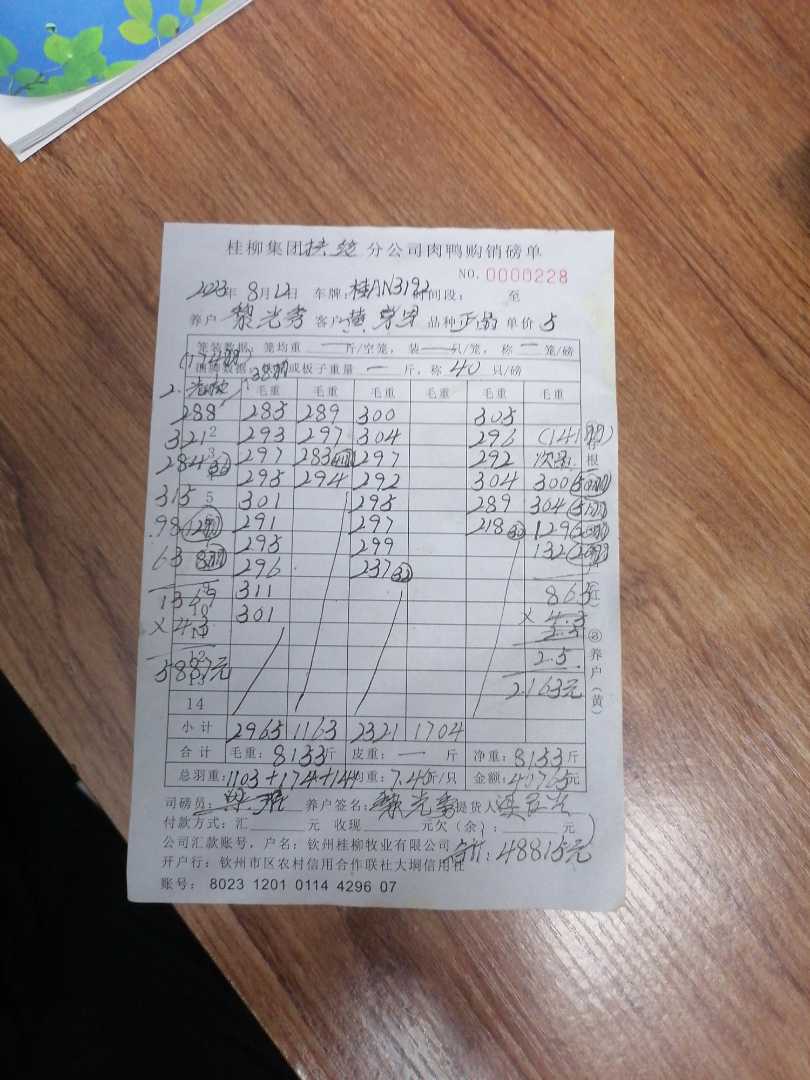 桂柳集团扶绥分公司肉鸭购销磅单
NO.0000228
2023年8月12日 车牌:桂AN3192 时间段: 至
养户黎光秀 客户黄 品种正品单价5
笼装数据,笼均重一斤/空笼,装一只/笼,称一笼/磅
(174羽)
或板子重量一斤,称40只/磅
38羽
毛重 毛重 毛重 毛重 毛重 毛重
288 285 289 300 305
321 2 293 297 304 296 (141羽)
284 3 297 283 297 292 次品 根
295 294 292 304 300
315 5 301 295 289 304
98 291 297 218 129
295 299 132
63 296 237 32
1369 311 865
× 4.3 10 301 × 4.3
11 2.5
12 2.5
5887元 13 2163元
14
② 养户(黄)
小计 2965 1163 2321 1704
合计 毛重:8153斤 皮重:一斤 净重:8153斤
总羽重:1103+174+141 均重:7.4斤/只 金额:40765元
司磅员: 养户签名:黎光秀 提货人
付款方式:汇 元 收现 元欠(余): 元
公司汇款账号,户名:钦州桂柳牧业有限公司 合计:48815元
开户行:钦州市区农村信用合作联社大垌信用社
账号: 8023 1201 0114 4296 07